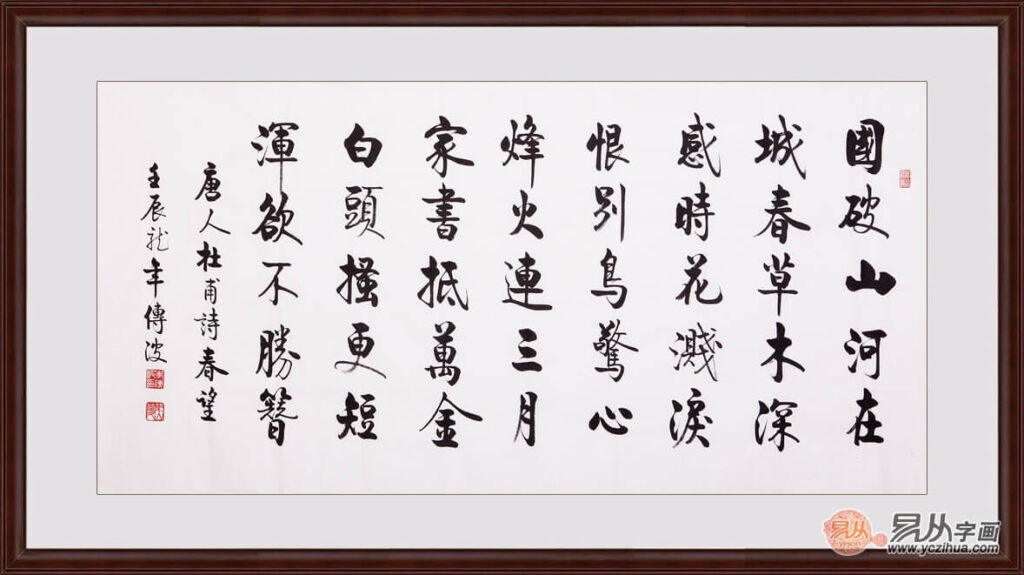 國破山河在
城春草木深
感時花濺淚
恨別鳥驚心
烽火連三月
家書抵萬金
白頭搔更短
渾欲不勝簪
唐人杜甫詩春望
壬辰龙年傳波
易从
易从字画
www.yczihua.com